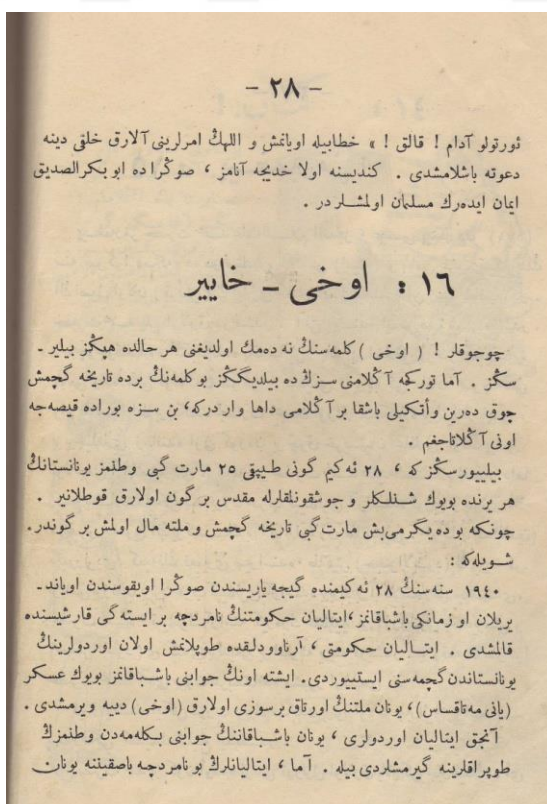 - ٢٨ -
ئورتولو آدام ! قالق ! » خطابيله اويانمش و اللهڭ امرلرينى آلارق خلقى دينه
دعوته باشلامشدى . كنديسنه اولا خديجه آنامز ، صوڭرا ده ابو بكر الصديق
ايمان ايده‌رك مسلمان اولمشــلر در .
١٦ : اوخى ــ خايير
چوجوقلر ! ( اوخى ) كلمه‌سنڭ نه ده‌مك اولديغنى هر حالده هپڭز بيلير ـ
سڭز . آما توركجه آڭلامنى سـزڭ ده بيلديگڭز بو كلمه‌نڭ برده تاريخه گچمش
چوق ده‌رين وأتكيلى باشقا بر آڭلامى داها وار دركه، بن سزه بوراده قيصه‌جه
اونى آڭلاتاجغم .
بيلييورسڭز كه ، ٢٨ ئه‌كيم گونى طبقى ٢٥ مارت گبى وطنمز يونانستانڭ
هر يرنده بويوك شنلكلر و جوشقونلقلرله مقدس بر گون اولارق قوطلانير .
چونكه بو ده يگرمى‌بش مارت گبى تاريخه گچمش و ملته مال اولمش بر گوندر.
شـويله‌كه :
١٩٤٠ سنه‌سنڭ ٢٨ ئه‌كيمنده گيجه ياريسندن صوڭرا اويقوسندن اوياند ـ
يريلان او زمانكى باشباقانمز ،ايتاليان حكومتنڭ نامردجه بر ايسته‌گى قارشيسنده
قالمشدى . ايتــاليان حكومتى ، آرناوودلقده طوپلانمش اولان اوردولرينڭ
يونانستاندن گچمه‌سنى ايستييوردى. ايشته اونڭ جوابنى باشــباقانمز بويوك عسكر
(يانى مه‌تاقساس) ، يونان ملتنڭ اورتاق بر سوزى اولارق (اوخى) دييه ويرمشدى .
آنجق ايتاليان اوردولرى ، يونان باشــباقاننڭ جوابنى بكله‌مه‌دن وطنمزڭ
طوپراقلرينه گيرمشلردى بيله . آما ، ايتاليانلرڭ بو نامردجه باصقيننه يونان